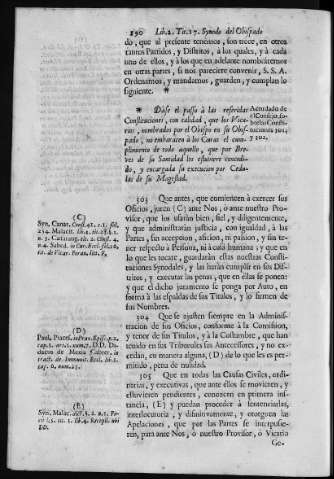 290 Lib. 2. Tit. 17. Synodo del Obispado
do, que al presente tenemos, son trece, en otros
tantos Partidos, y Distritos, à los quales, y à cada
uno de ellos, y à los que en adelante nombaremos
en otras partes, si nos pareciere convenir, S. S. A.
Ordenamos, y mandamos, guarden, y cumplan lo
siguiente. *
* Dàse el passo à las referidas
Constituciones, con calidad, que los Vica-
rios, nombrados por el Obispo en su Obis-
pado, no embaracen à los Curas el cum-
plimiento de todo aquello, que por Bre-
ves de su Santidad les estuviere concedi-
do, y encargada su execucion por Cedu-
las de su Magestad.
Acordado de
el Consejo, so-
bre las Consti-
tuciones 301,
y 302.
303 Que antes, que comiencen à exercer sus
Oficios, juren (C) ante Nos, ò ante nuestro Pro-
visor, que los usaràn bien, fiel, y diligentemente,
y que administraràn justicia, con igualdad, à las
Partes, sin accepcion, aficion, ni passion, y sin te-
ner respecto à Persona, ni à cosa humana; y que en
lo que les tocate, guardaràn estas nuestras Consti-
tuciones Synodales, y las haràn cumplir en sus Dis-
tritos, y executar las penas, que en ellas se ponen:
y que el dicho juramento se ponga por Auto, en
forma à las espaldas de sus Titulos, y lo firmen de
sus Nombres.
(C)
Syn. Caran. Const. 42. n. 1. fol.
304 Que se ajusten siempre en la Adminis-
tracion de sus Oficios, conforme à la Comission,
y tenor de sus Titulos, y à la Costumbre, que han
tenido en sus Tribunales sus Antecessores, y no ex-
cedan, en manera alguna, (D) de lo que les es per-
mitido, pena de nulidad.
(D)
305 Que en todas las Causas Civiles, ordi-
narias, y executivas, que ante ellos se movieren, y
estuvieren pendientes, conozcan en primera ins-
tancia, (E) y puedan proceder à sentenciarlas,
interlocutoria, y difinitivamente, y otorguen las
Apelaciones, que por las Partes se interpusie-
ren, para ante Nos, ò nuestro Provisor, ò Vicario
(E)
Ge-